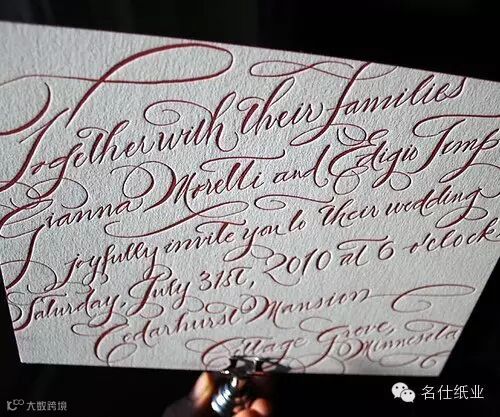 Together with their families
Gianna Morelli and Edigio Temp
joyfully invite you to their wedding
Saturday, July 31st, 2010 at 6 o'clock
Cedarhurst Mansion
Cottage Grove,
Minnesota
大数跨境
名仕纸业